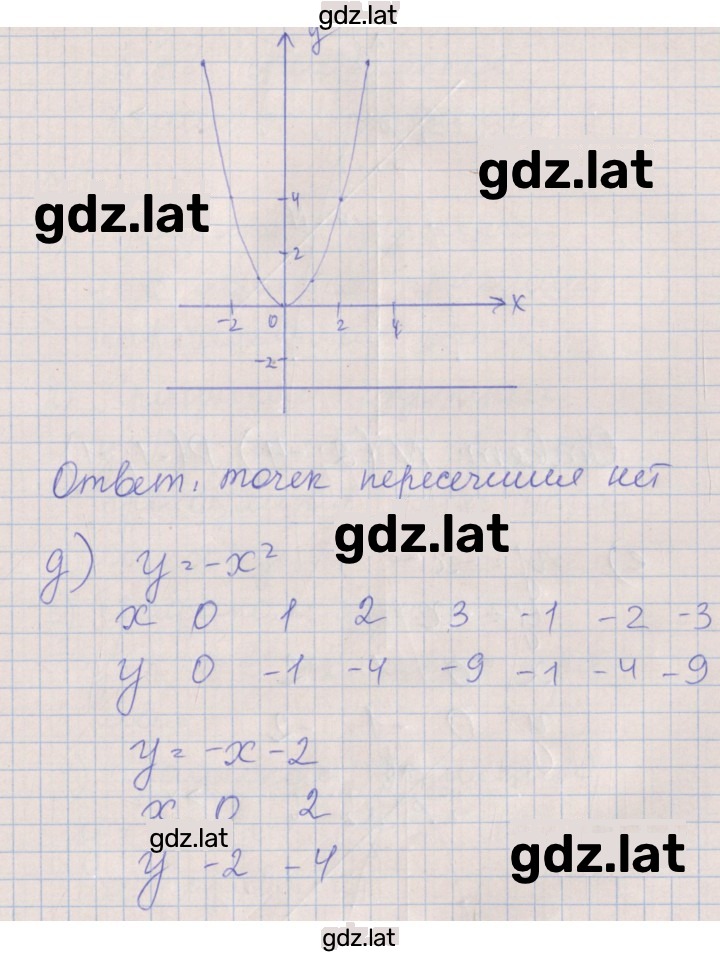 gdz.lat
y
gdz.lat
gdz.lat
4
2
-2 0 2 4 x
-2
Ответ: точек пересечения нет
gdz.lat
д) y = -x²
x 0 1 2 3 -1 -2 -3
y 0 -1 -4 -9 -1 -4 -9
y = -x - 2
x 0 2
gdz.lat
y -2 -4
gdz.lat
gdz.lat